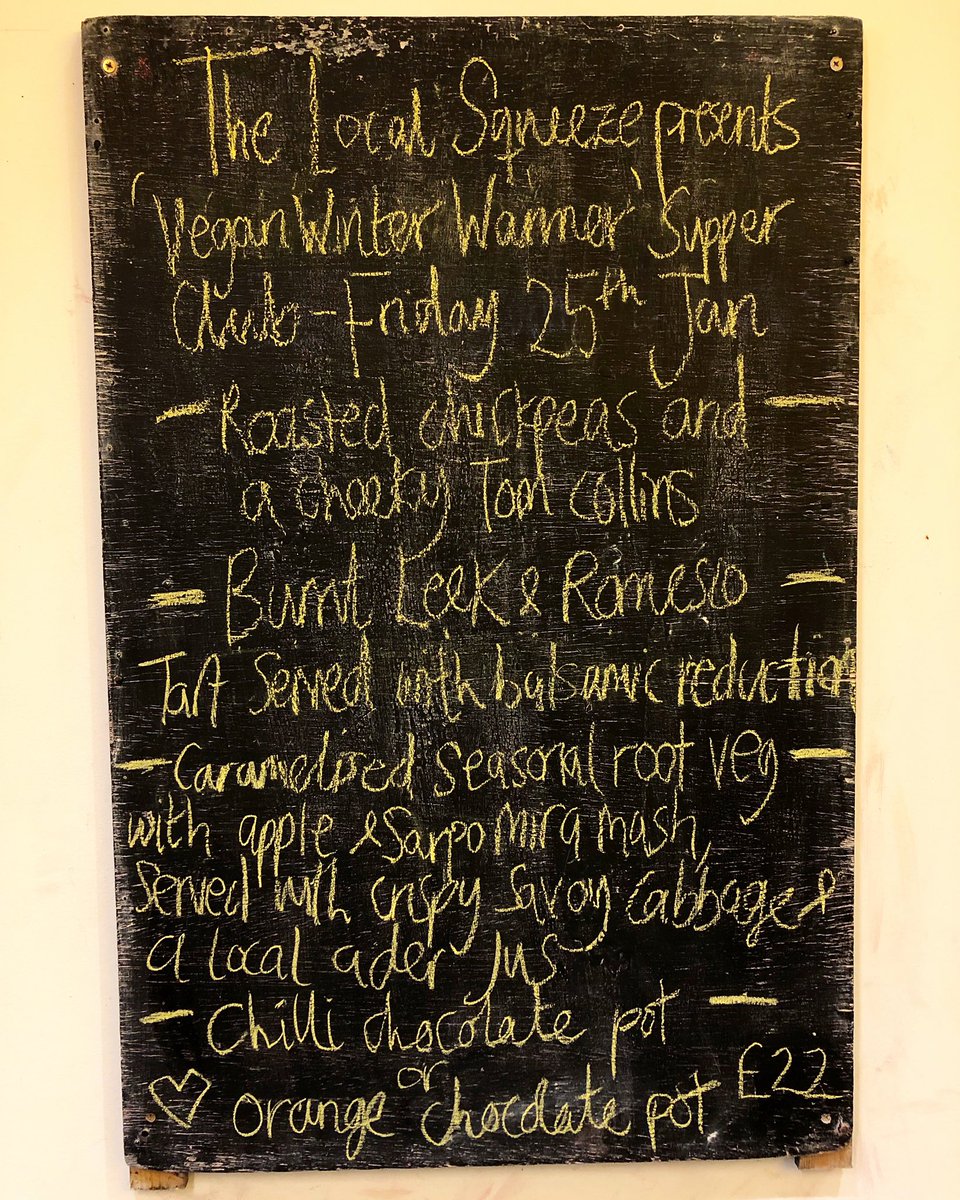 The Local Squeeze presents
'Vegan Winter Warmer' Supper
Club - Friday 25th Jan
- Roasted chickpeas and -
a cheeky Tom collins
- Burnt Leek & Romesco -
Tart Served with balsamic reduction
- Caramelised seasonal root veg -
with apple & Sarpo mira mash,
Served with crispy Savoy cabbage &
a local cider jus
- Chilli chocolate pot -
or
orange chocolate pot £22